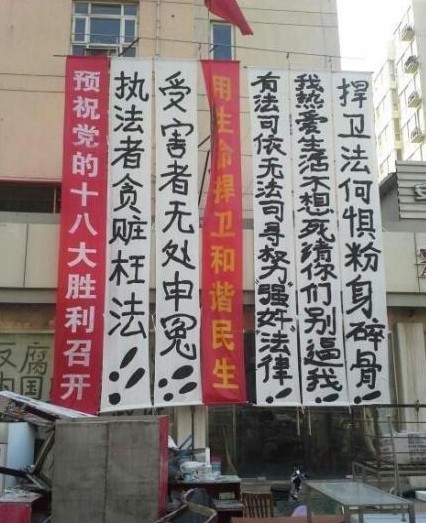 预祝党的十八大胜利召开
执法者贪赃枉法!!
受害者无处申冤!!!
用生命捍卫和谐民生
有法可依无法可寻努"强奸"法律!
我热爱生活不想死请你们别逼我!!
捍卫法何惧粉身碎骨!!
反腐
国